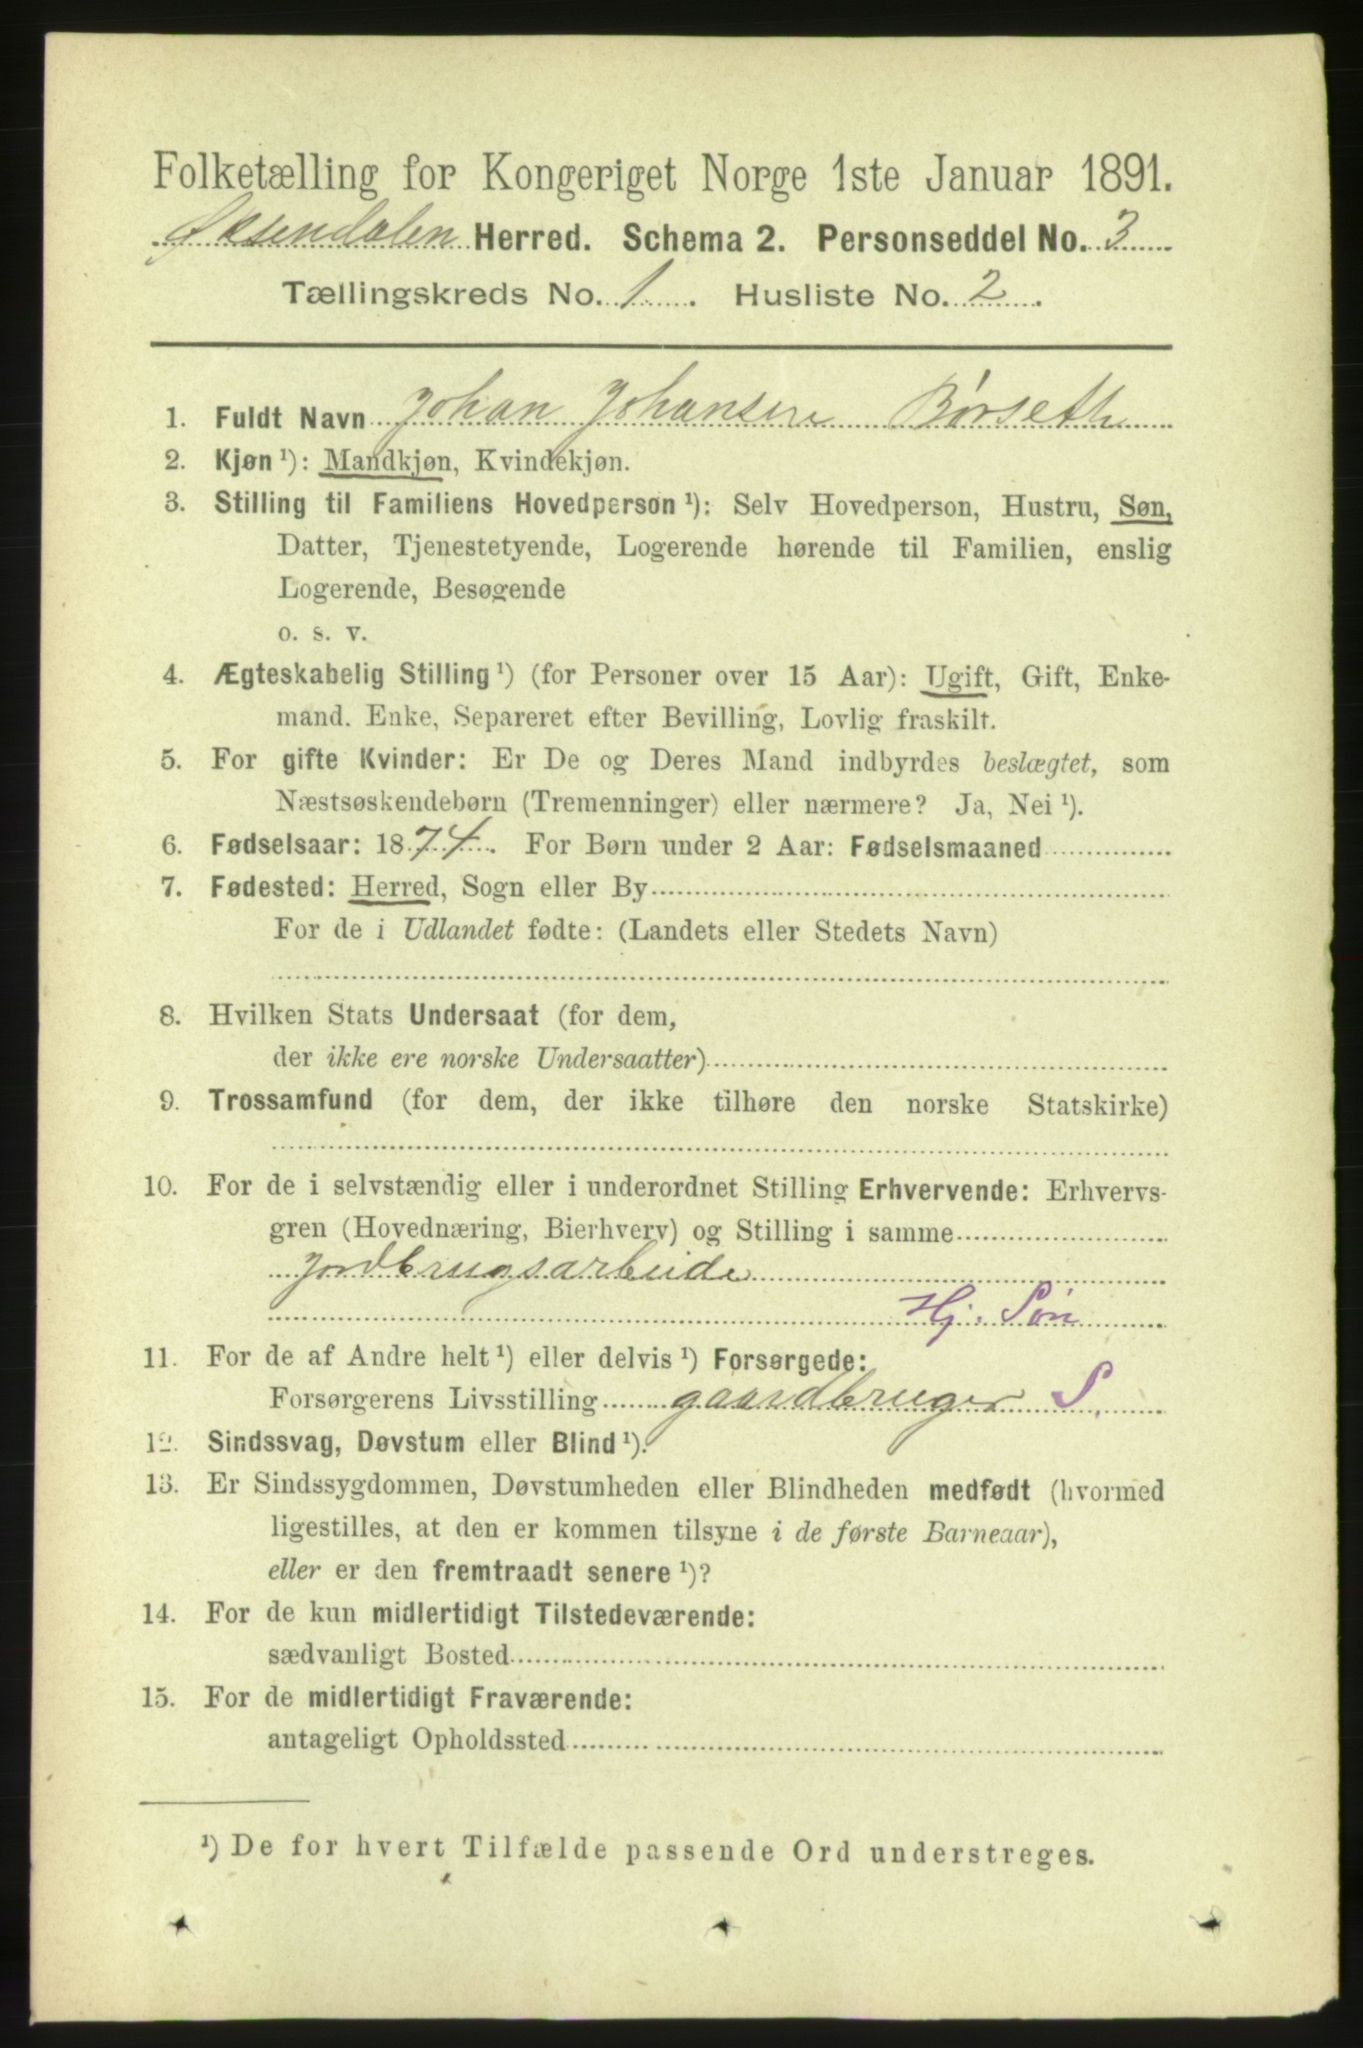 Folketælling for Kongeriget Norge 1ste Januar 1891.
Øksendalen Herred. Schema 2. Personseddel No. 3
Tællingskreds No. 1. Husliste No. 2.
1. Fuldt Navn Johan Johansen Børseth
2. Kjøn ¹): Mandkjøn, Kvindekjøn.
3. Stilling til Familiens Hovedperson ¹): Selv Hovedperson, Hustru, Søn,
Datter, Tjenestetyende, Logerende hørende til Familien, enslig
Logerende, Besøgende
o. s. v.
4. Ægteskabelig Stilling ¹) (for Personer over 15 Aar): Ugift, Gift, Enke-
mand. Enke, Separeret efter Bevilling, Lovlig fraskilt.
5. For gifte Kvinder: Er De og Deres Mand indbyrdes beslægtet, som
Næstsøskendebørn (Tremenninger) eller nærmere? Ja, Nei ¹).
6. Fødselsaar: 1874. For Børn under 2 Aar: Fødselsmaaned
7. Fødested: Herred, Sogn eller By
For de i Udlandet fødte: (Landets eller Stedets Navn)
8. Hvilken Stats Undersaat (for dem,
der ikke ere norske Undersaatter)
9. Trossamfund (for dem, der ikke tilhøre den norske Statskirke)
10. For de i selvstændig eller i underordnet Stilling Erhvervende: Erhvervs-
gren (Hovednæring, Bierhverv) og Stilling i samme
Jordbrugsarbeide
Hj. Søn
11. For de af Andre helt ¹) eller delvis ¹) Forsørgede:
Forsørgerens Livsstilling gaardbruger S.
12. Sindssvag, Døvstum eller Blind ¹).
13. Er Sindssygdommen, Døvstumheden eller Blindheden medfødt (hvormed
ligestilles, at den er kommen tilsyne i de første Barneaar),
eller er den fremtraadt senere ¹)?
14. For de kun midlertidigt Tilstedeværende:
sædvanligt Bosted
15. For de midlertidigt Fraværende:
antageligt Opholdssted
¹) De for hvert Tilfælde passende Ord understreges.